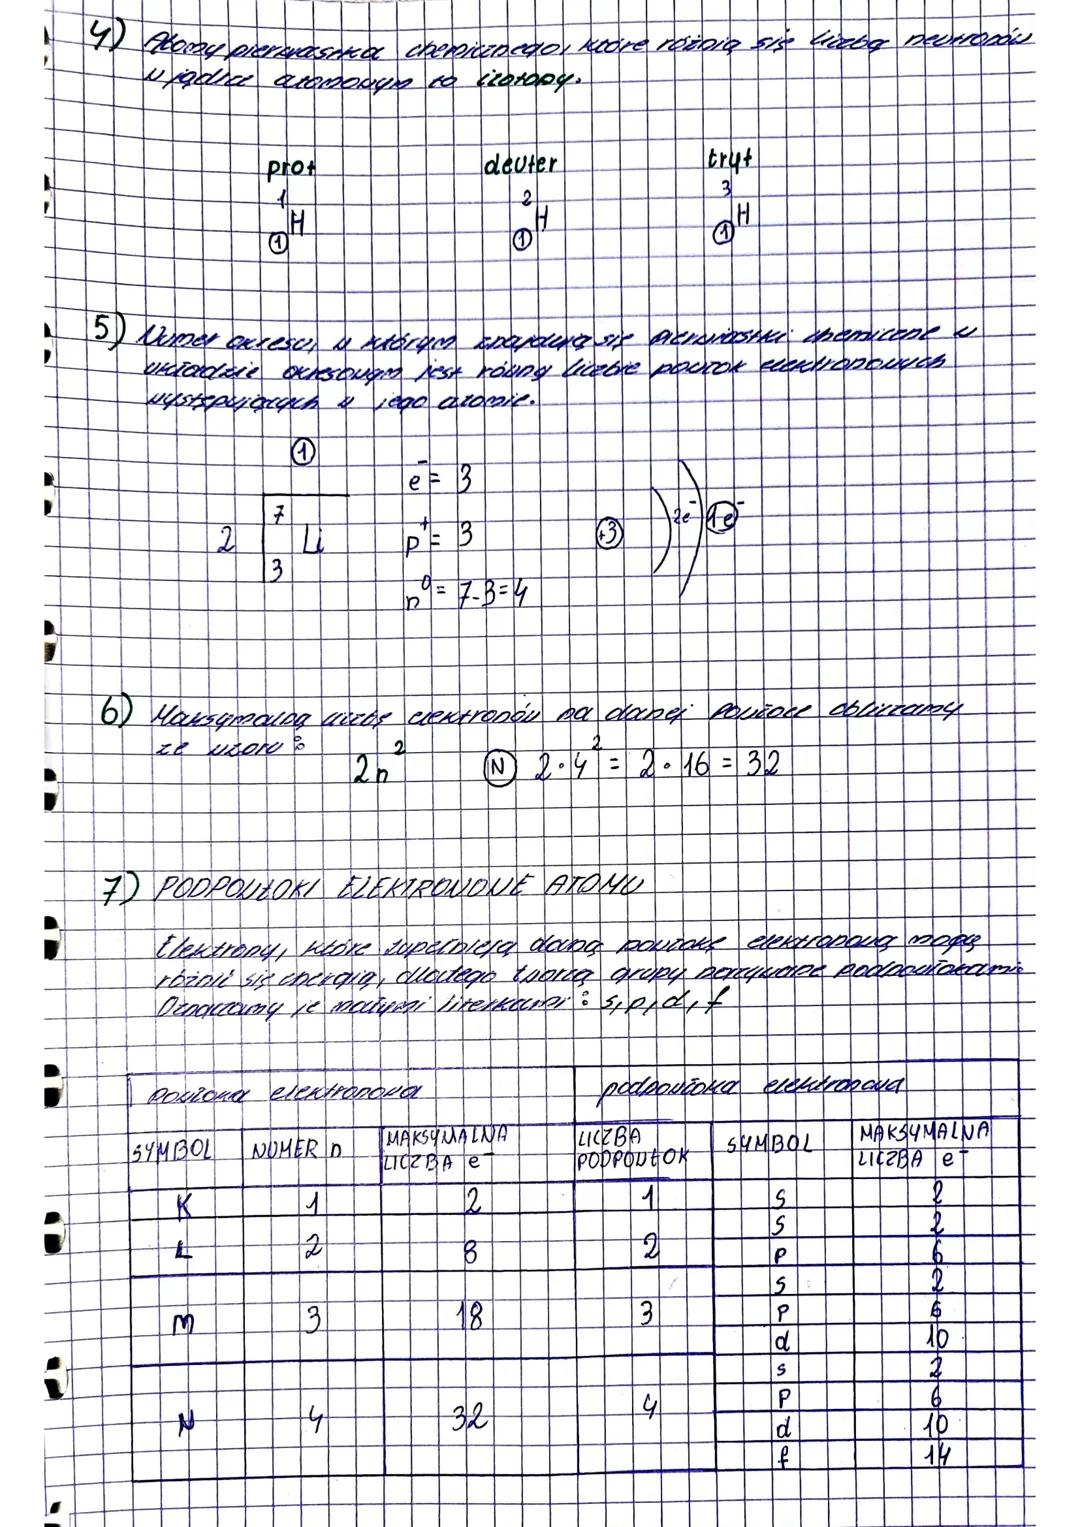 4) Atomy pierwiastka chemicznego, które różnią się liczbą neutronów
w jądrze atomowym to izotopy.
prot deuter tryt
1 2 3
H H H
1 1 1
5) Numer okresu, w którym znajdują się pierwiastki chemiczne w
układzie okresowym jest równy liczbie powłok elektronowych
występujących w jego atomie.
1
e⁻ = 3
7
2 Li p⁺ = 3 +3 2e⁻ 1e⁻
3
n⁰ = 7-3=4
6) Maksymalną liczbę elektronów na danej powłoce obliczamy
ze wzoru:
2n² N 2·4² = 2·16 = 32
7) PODPOWŁOKI ELEKTRONOWE ATOMU
Elektrony, które zupełniają daną powłokę elektronową mogą
różnić się energią, dlatego tworzą grupy nazywane podpowłokami.
Oznaczamy je małymi literkami: s, p, d, f
powłoka elektronowa podpowłoka elektronowa
SYMBOL NUMER n MAKSYMALNA LICZBA e⁻ LICZBA PODPOWŁOK SYMBOL MAKSYMALNA LICZBA e⁻
K 1 2 1 s 2
s 2
L 2 8 2 p 6
s 2
M 3 18 3 p 6
d 10
s 2
p 6
N 4 32 4 d 10
f 14